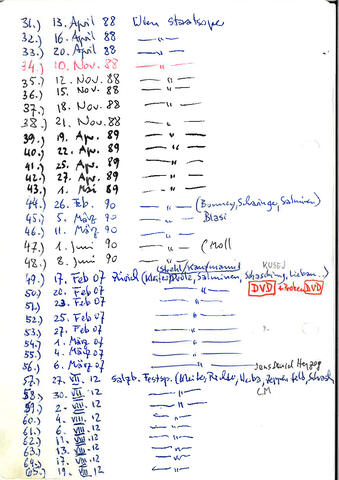 31.) 13. April 88 Wien Staatsoper
32.) 16. April 88 — " —
33.) 20. April 88 — " —
34.) 10. Nov. 88 — " —
35.) 12. Nov. 88 — " —
36.) 15. Nov. 88 — " —
37.) 18. Nov 88 — " —
38.) 21. Nov 88 — " —
39.) 19. Apr. 89 — " —
40.) 22. Apr. 89 — " —
41.) 25. Apr. 89 — " —
42.) 27. Apr. 89 — " —
43.) 1. Mai 89 — " —
44.) 26. Feb. 90 — " — (Bonney, Salminen)
45.) 5. März 90 — " — Blasi
46.) 11. März 90 — " —
47.) 1. Juni 90 — " — (Moll
48.) 8. Juni 90 — " —
(Strehl/Kaufmann) KUSEJ
49.) 17. Feb 07 Zürich (Salminen,
50.) 20. Feb 07 — " — DVD DVD
51.) 23. Feb 07 — " —
52.) 25. Feb 07 — " —
53.) 27. Feb 07 — " —
54.) 1. März 07 — " —
55.) 4. März 07 — " —
56.) 6. März 07 — " — Jens Daniel Herzog
57.) 27. VII. 12 Salzb. Festsp. (Kleiter, Richter,
58.) 30. VII. 12 — " — CM
59.) 2. VIII. 12 — " —
60.) 4. VIII. 12 — " —
61.) 6. VIII. 12 — " —
62.) 11. VIII. 12 — " —
63.) 13. VIII. 12 — " —
64.) 17. VIII. 12 — " —
65.) 19. VIII. 12 — " —